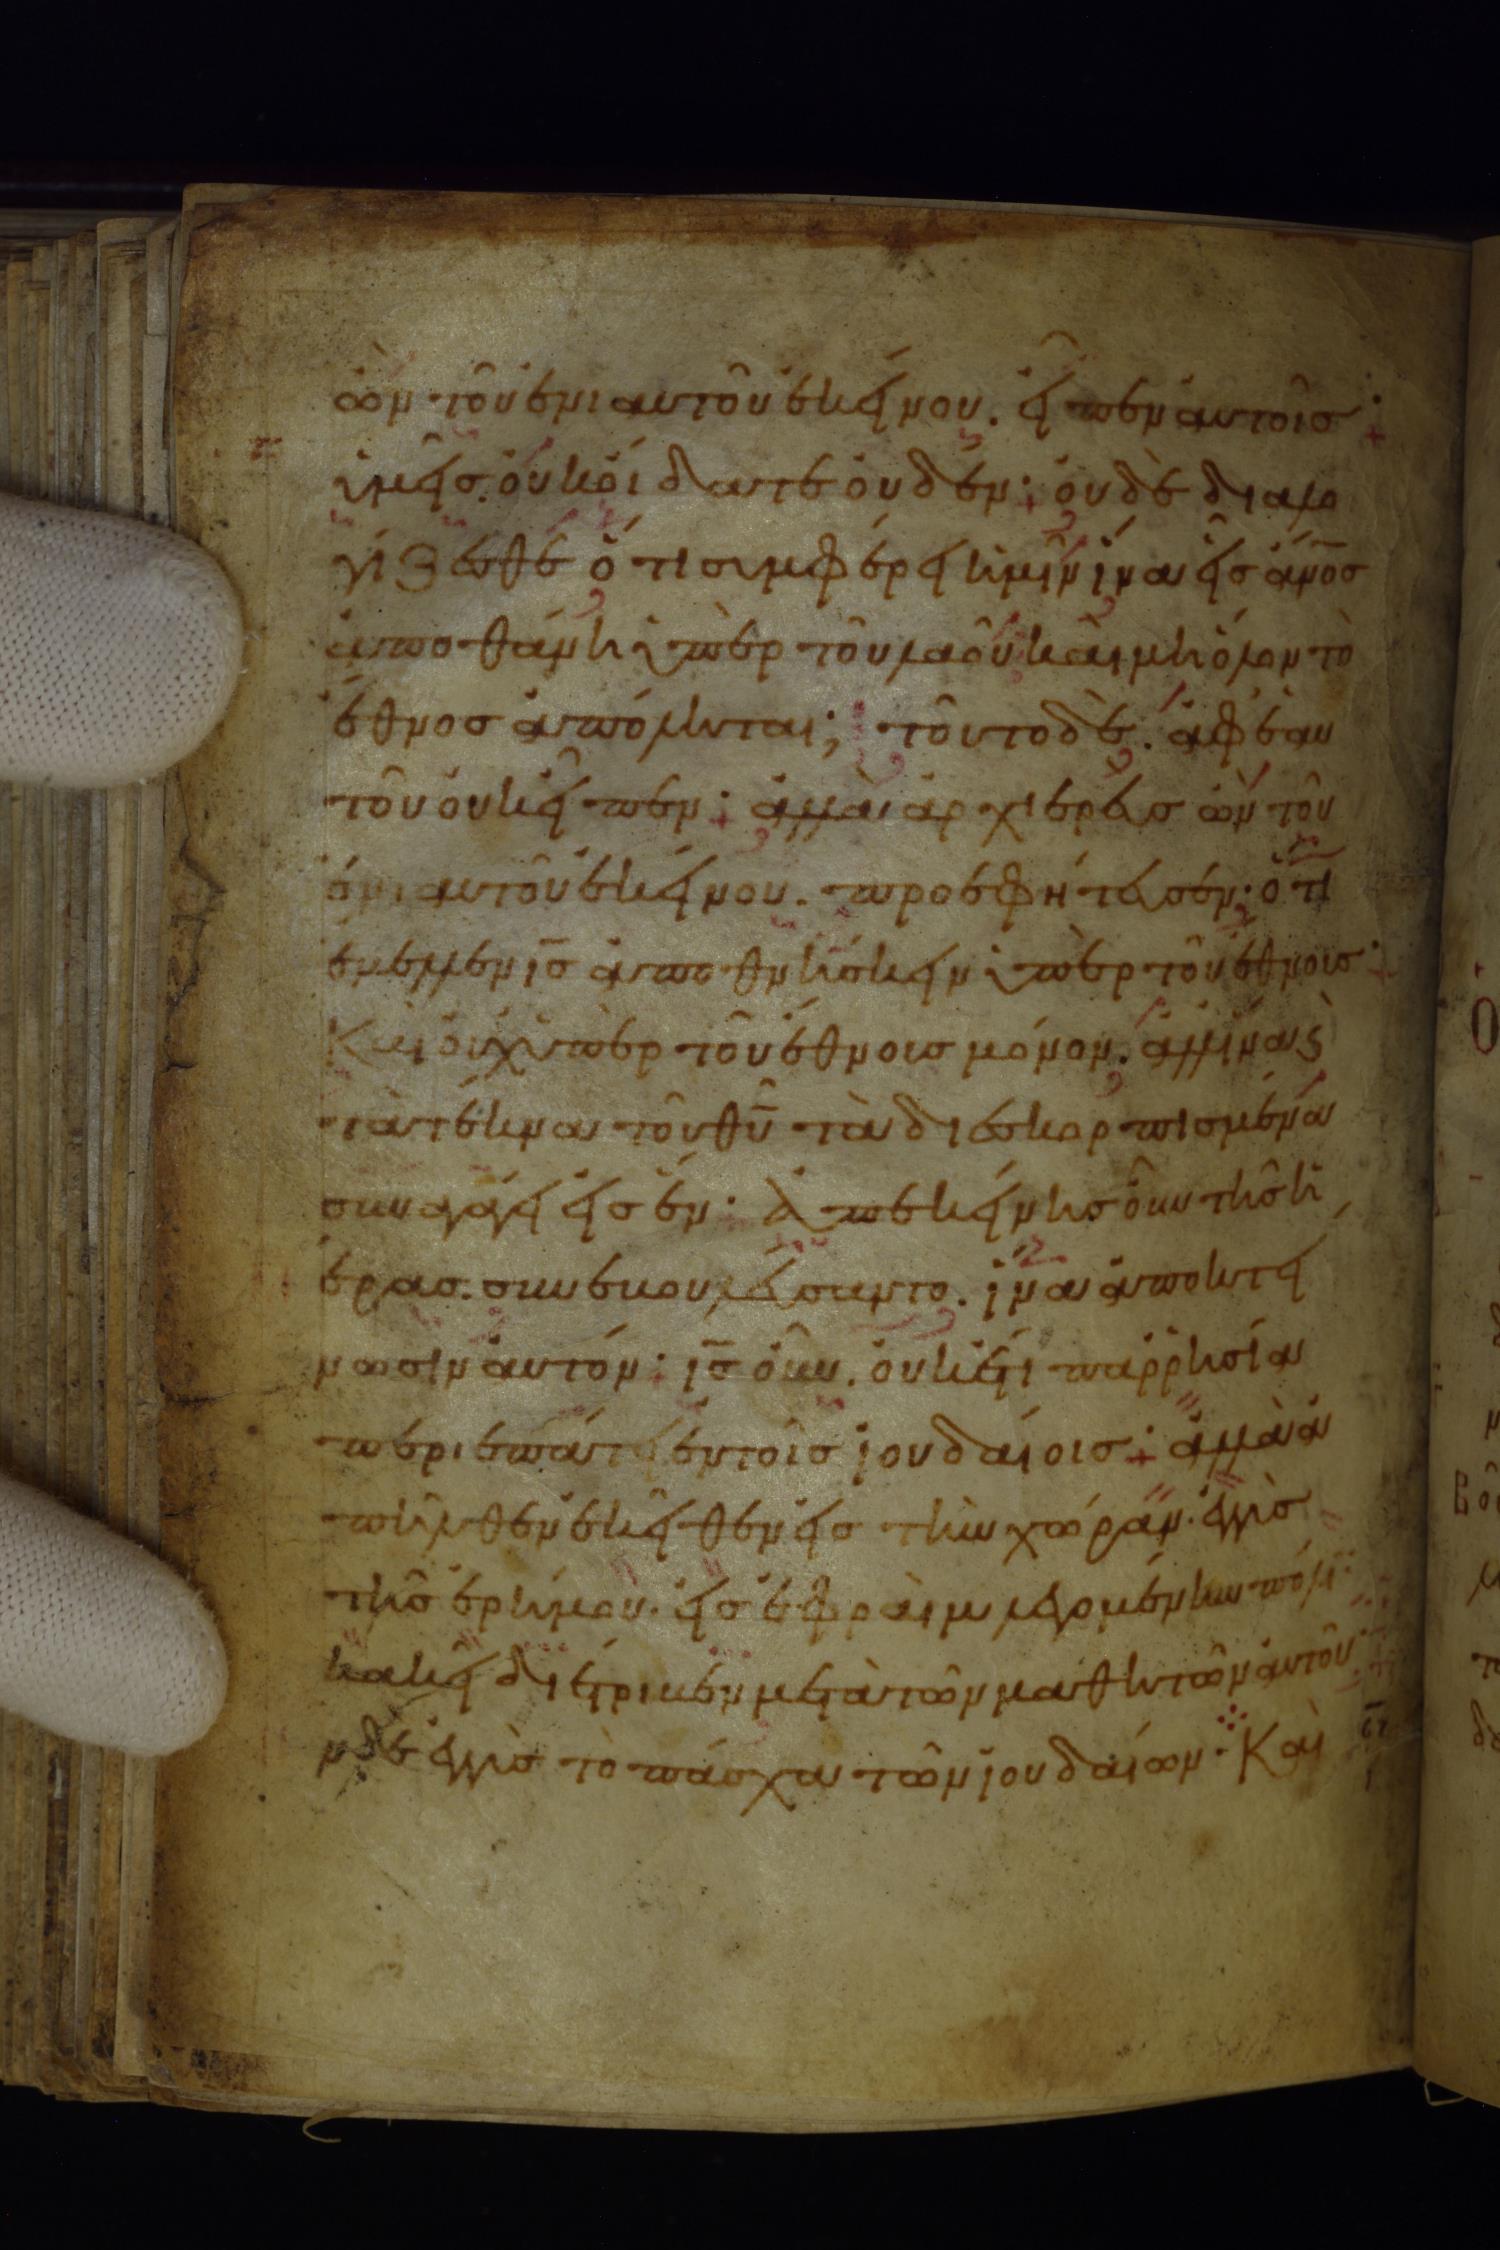 ὢν τοῦ ἐνιαυτοῦ ἐκείνου. εἶπεν αὐτοῖς·
ὑμεῖς οὐκ οἴδατε οὐδέν· οὐδὲ διαλο
γίζεσθε ὅτι συμφέρει ἡμῖν ἵνα εἷς ἄνο̅σ
ἀποθάνη ὑπὲρ τοῦ λαοῦ καὶ μὴ ὅλον τὸ
ἔθνος ἀπόληται; τοῦτο δὲ. ἀφ ἑαυ
τοῦ οὐκ εἶπεν· ἀλλὰ ἀρχιερεὺς ὢν τοῦ
ἐνιαυτοῦ ἐκείνου. προεφήτευσεν· ὅτι
ἔμελλεν ι̅σ̅ ἀποθνήσκειν ὑπὲρ τοῦ ἔθνους·
Καὶ οὐχ ὑπὲρ τοῦ ἔθνους μόνον. ἀλλ ἵνα ϛ
τὰ τέκνα τοῦ θυ̅ τὰ διεσκορπισμένα
συναγάγει εἰς ἕν· ἀπ ἐκείνης οὖν τῆς ἡ
μέρας. συνεβουλεύσαντο. ἵνα ἀποκτεί
νωσιν αὐτόν· ι̅σ̅ οὖν. οὐκέτι παρρησία
περιεπάτει ἐν τοῖς ἰουδαίοις· ἀλλὰ ἀ
πῆλθεν ἐκεῖθεν εἰς τὴν χώραν. ἐγγὺς
τῆς ἐρήμου. εἰς ἐφραὶμ λεγομένην πόλιν·
κακεῖ διέτριβεν μετὰ τῶν μαθητῶν αὐτοῦ·
ην δὲ ἐγγὺς τὸ πάσχα τῶν ἰουδαίων· Καὶ